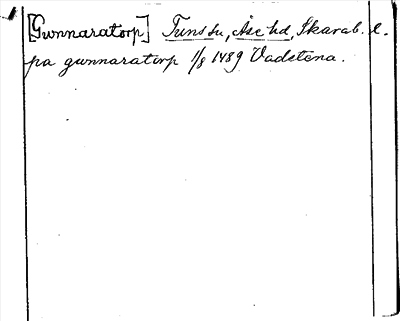 [Gunnaratorp] Tuns sn, Åse hd, Skarab. l.
pa gunnaratorp 1/8 1489 Vadstena.